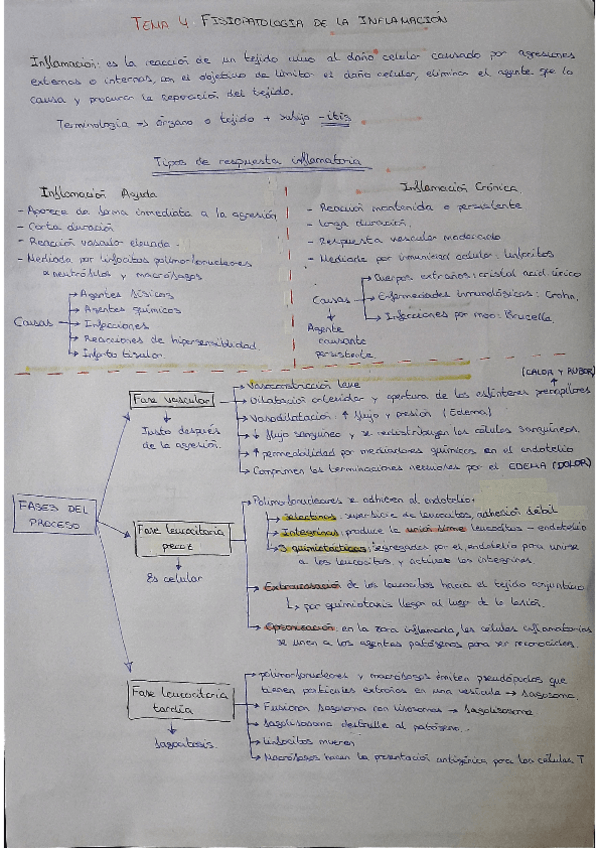 TEMA 4. FISIOPATOLOGIA DE LA INFLAMACIÓN
Inflamacion: es la reaccion de un tejido vivo al daño celular causado por agresiones
externas o internas, con el objetivo de limitar el daño celular, eliminar el agente que lo
causa y procurar la reparación del tejido.
Terminologia → órgano o tejido + sufijo -itis
Tipos de respuesta inflamatoria
Inflamación Aguda
- Aparece de forma inmediata a la agresión
- Corta duración
- Reacción vascular elevada.
- Mediada por linfocitos polimorfonucleares
o neutrófilos y macrófagos
Causas
Agentes físicos
Agentes químicos
Infecciones
Reacciones de hipersensibilidad.
Infarto tisular.
Inflamación Crónica
- Reacción mantenida o persistente
- Larga duración.
- Respuesta vascular moderada
- Mediada por inmunidad celular: linfocitos
Causas
Cuerpos extraños: cristal acid. úrico
Enfermedades inmunológicas: Crohn.
Infecciones por moo: Brucella.
Agente
causante
persistente.
FASES DEL
PROCESO
Fase vascular
Justo después
de la agresión.
(CALOR Y RUBOR)
Vasoconstricción leve
Dilatación arteriolar y apertura de los esfínteres precapilares
Vasodilatación: ↑ flujo y presión (Edema)
↓ flujo sanguíneo y se redistribuyen las células sanguíneas.
↑ permeabilidad por mediadores químicos en el endotelio
Comprimen las terminaciones nerviosas por el EDEMA (DOLOR)
Fase leucocitaria
precoz
Es celular
Polimorfonucleares se adhieren al endotelio.
Selectinas: superficie de leucocitos, adhesión débil
Integrinas: produce la unión firme leucocitos - endotelio
S quimiotácticas: segregadas por el endotelio para unirse
a los leucocitos y activar las integrinas.
Extravasación de los leucocitos hacia el tejido conjuntivo
↳ por quimiotaxis llegan al lugar de la lesión.
Opsonización: en la zona inflamada, las células inflamatorias
se unen a los agentes patógenos para ser reconocidos.
Fase leucocitaria
tardía
fagocitosis.
polimorfonucleares y macrófagos emiten pseudópodos que
tienen partículas extrañas en una vesícula → fagosoma.
Fusionan fagosoma con lisosomas → fagolisosoma
fagolisosoma destruye al patógeno.
Linfocitos mueren
Macrófagos hacen la presentación antigénica para las células T